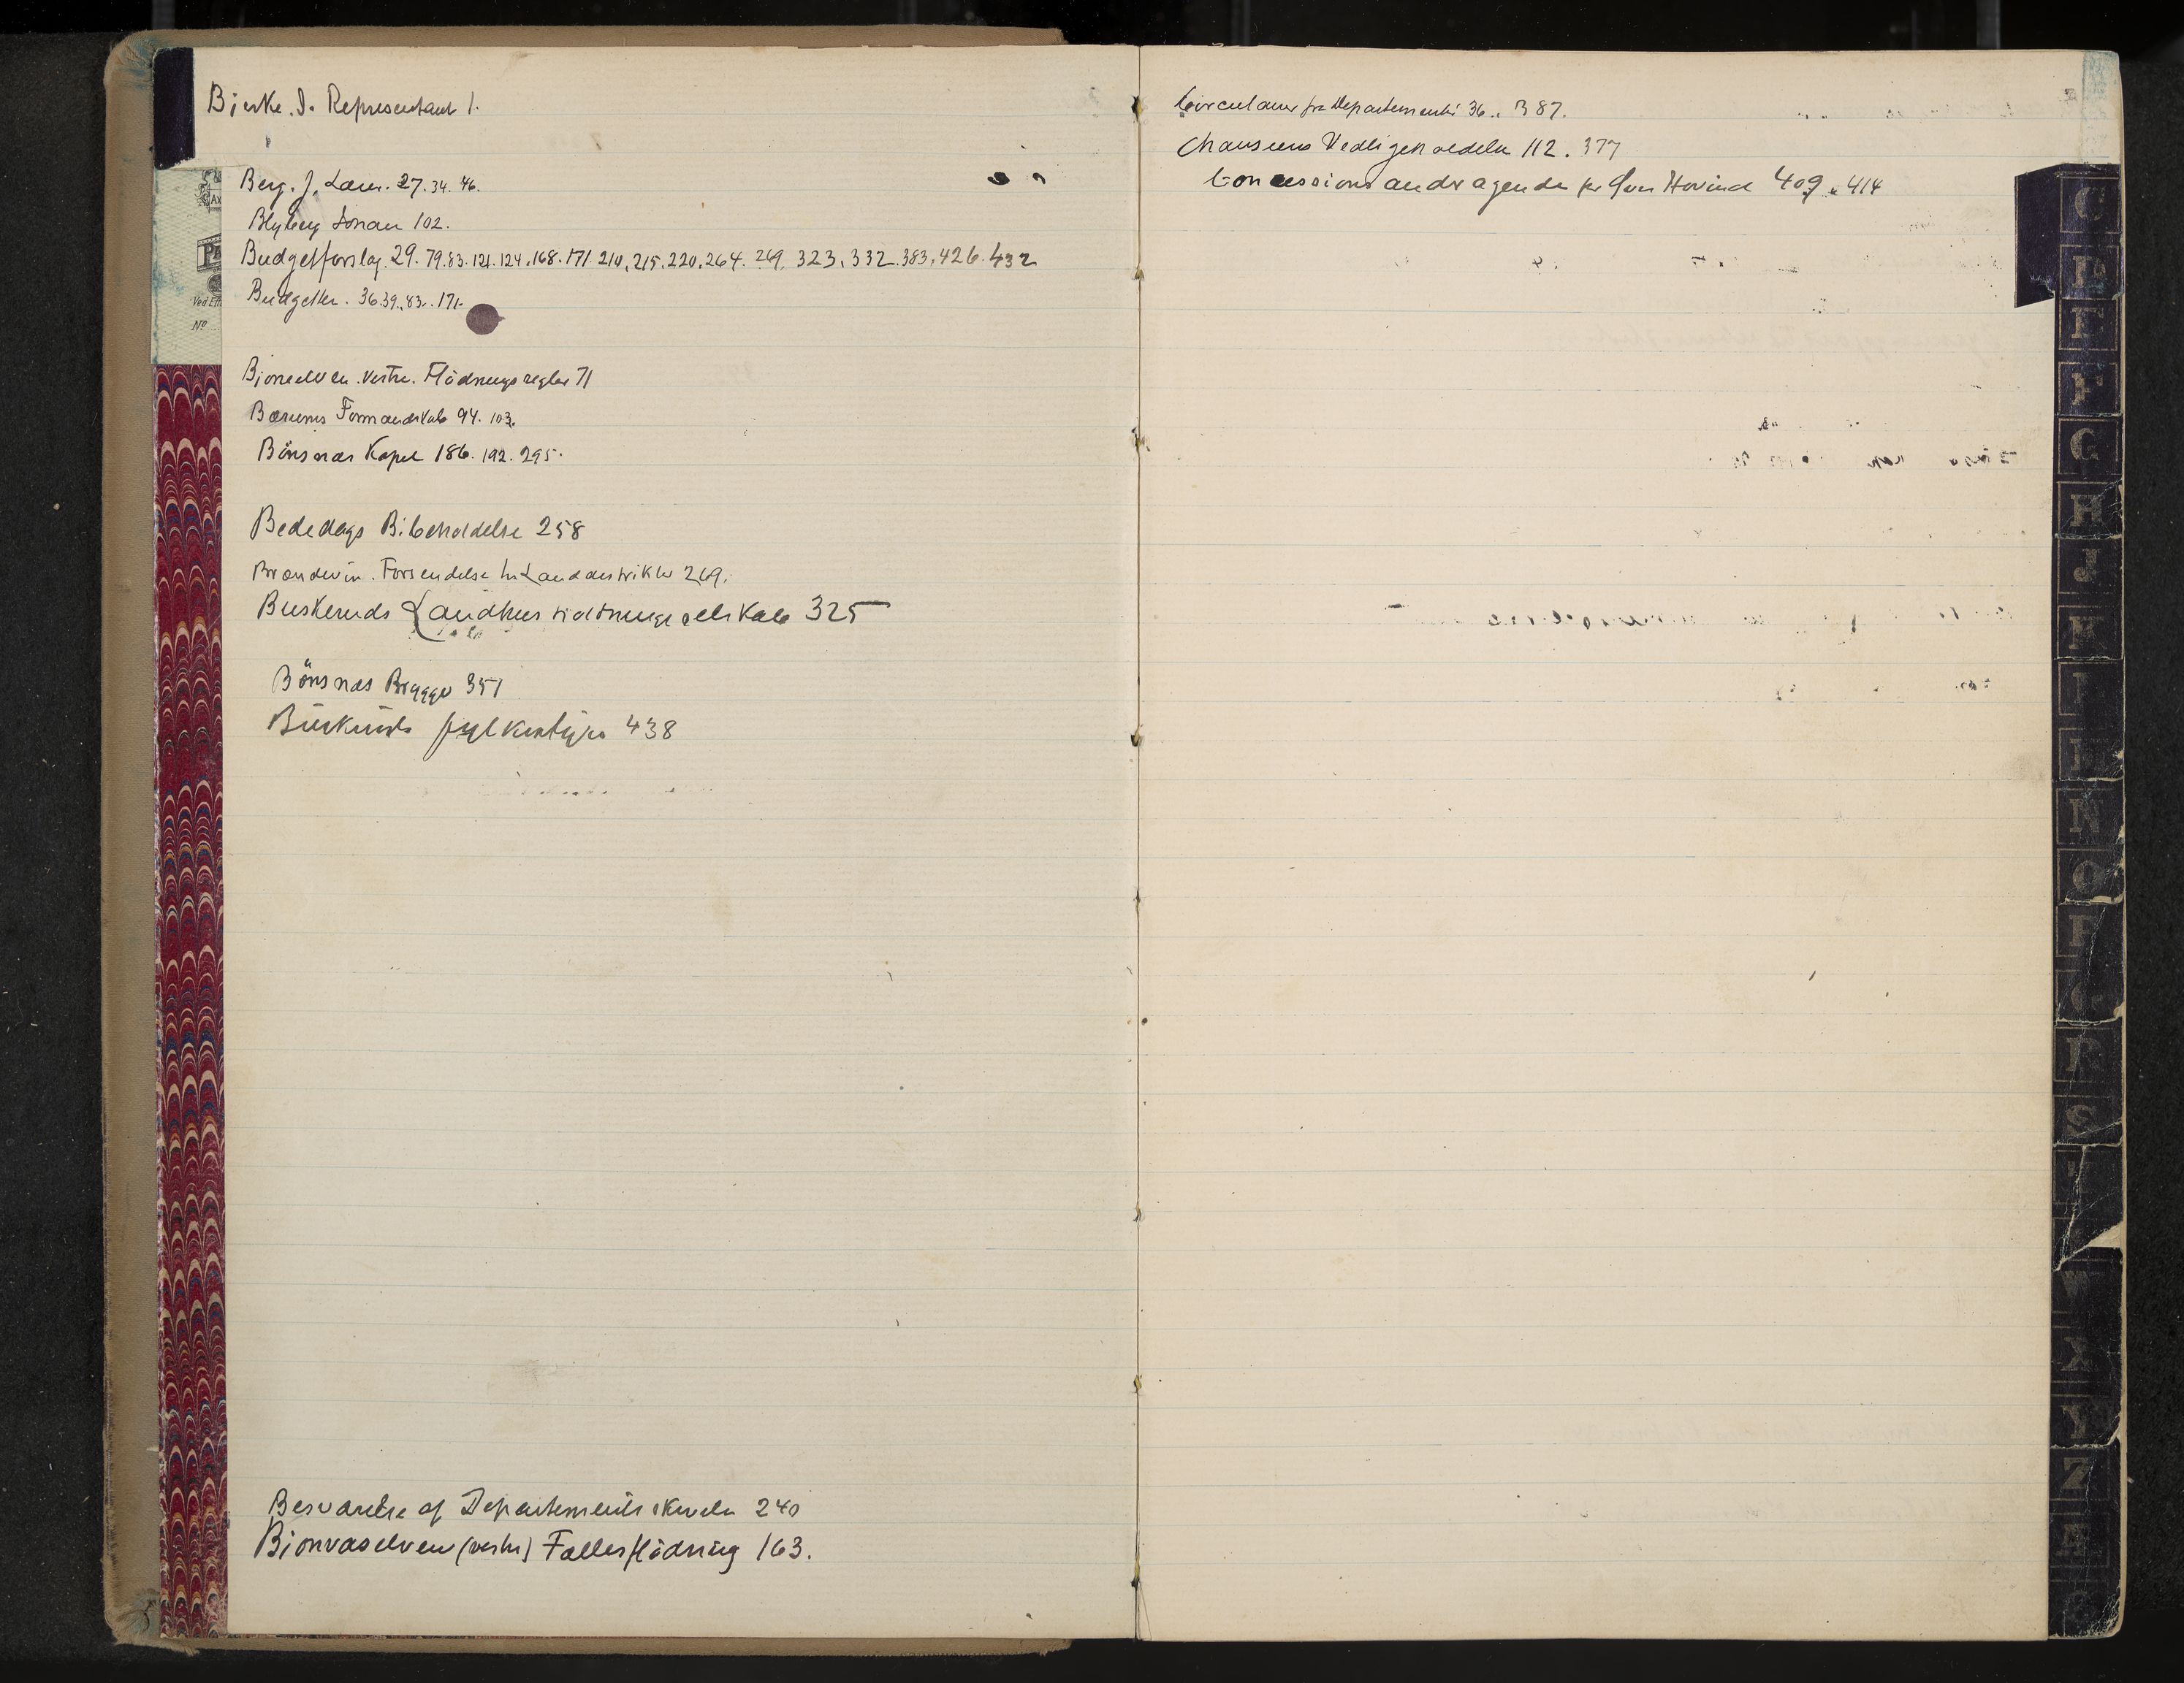 Bjerke. J. Representant 1.
Berg. J. Lærer. 27. 34. 46.
Blyberg Jonan 102.
Budgetforslag. 29. 79. 83. 121. 124. 168. 171. 210. 215. 220. 264. 269. 323. 332. 383. 426. 432
Budgetter. 36. 39. 83. 171.
Ved
No
Bjoneelven. Vestre. Flödnings regler 71
Bærums Formandskab 94. 103.
Bönsnæs Kapel 186. 192. 295.
Bededags Bibeholdelse 258
Brændevin. Forsendelse til Landdistrikter 269.
Buskeruds Landhusholdningsselskab 325
Bönsnæs Brygge 351
Buskeruds fylkestyre 438
Besvarelse af Departements skrivelse 240
Bjonvaselven (vestre) Fællesflödning 163.
Circulærer fra Departementet 36. 387.
Chauseens Vedligeholdelse 112. 377
Concessionsandragende fra Iver Hovind 409. 414
C
D
E
F
G
H
J
K
L
M
N
O
P
Q
R
S
T
W
X
Y
Z
Æ
Ø